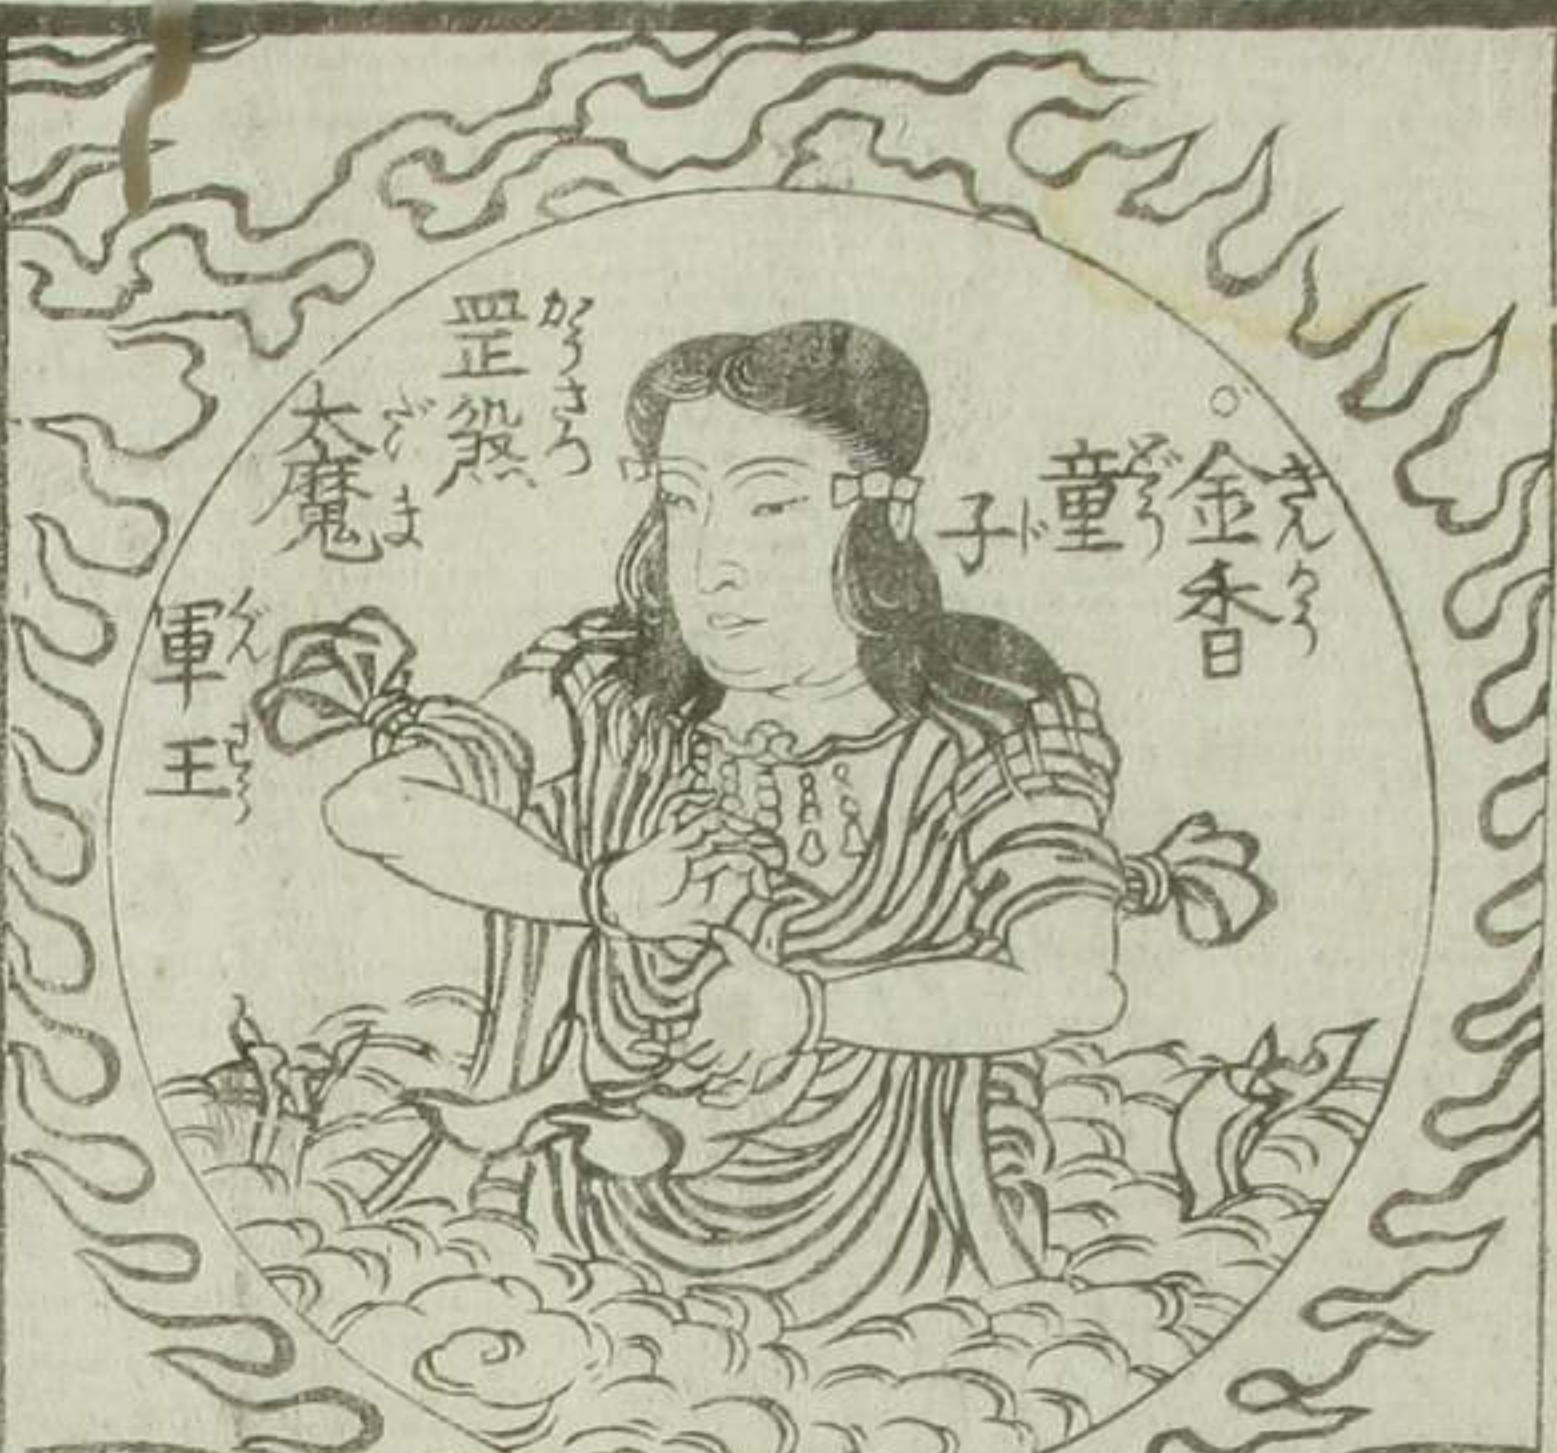 きんかう
○金香
どう
童
子
かうさつ
罡煞
だいま
太魔
ぐんわう
軍王